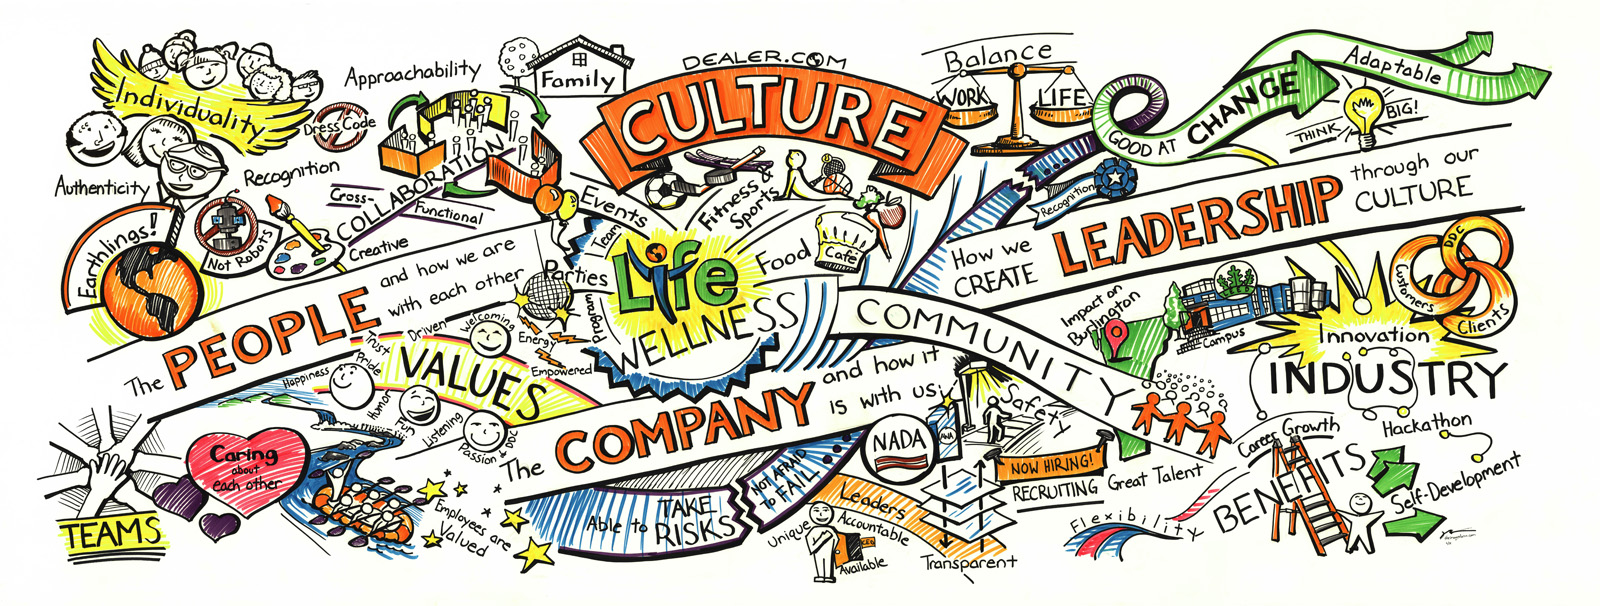 DEALER.COM
CULTURE
Individuality
Approachability
Family
Dress Code
Recognition
Authenticity
COLLABORATION
Cross-
Functional
Earthlings!
Not Robots
Creative
The PEOPLE and how we are
with each other
Events
Team
Parties
Fitness &
Sports
Food
Cafe
Life
WELLNESS
Balance
WORK
LIFE
GOOD AT CHANGE
Adaptable
THINK
BIG!
Recognition
How we
CREATE
LEADERSHIP
through our
CULTURE
COMMUNITY
Impact on
Burlington
Campus
Innovation
DDC
Customers
Clients
INDUSTRY
Hackathon
VALUES
Driven
Welcoming
Energy
Empowered
Trust
Pride
Happiness
Humor
Fun
Listening
Passion
DDC
The COMPANY and how it
is with us
Safety
NADA
NOW HIRING!
RECRUITING Great Talent
Career Growth
BENEFITS
Self-Development
Flexibility
TEAMS
Caring
about
each other
Employees are
Valued
Able to TAKE
RISKS
NOT AFRAID
TO FAIL
Leaders
Unique
Accountable
CEO
Available
Transparent